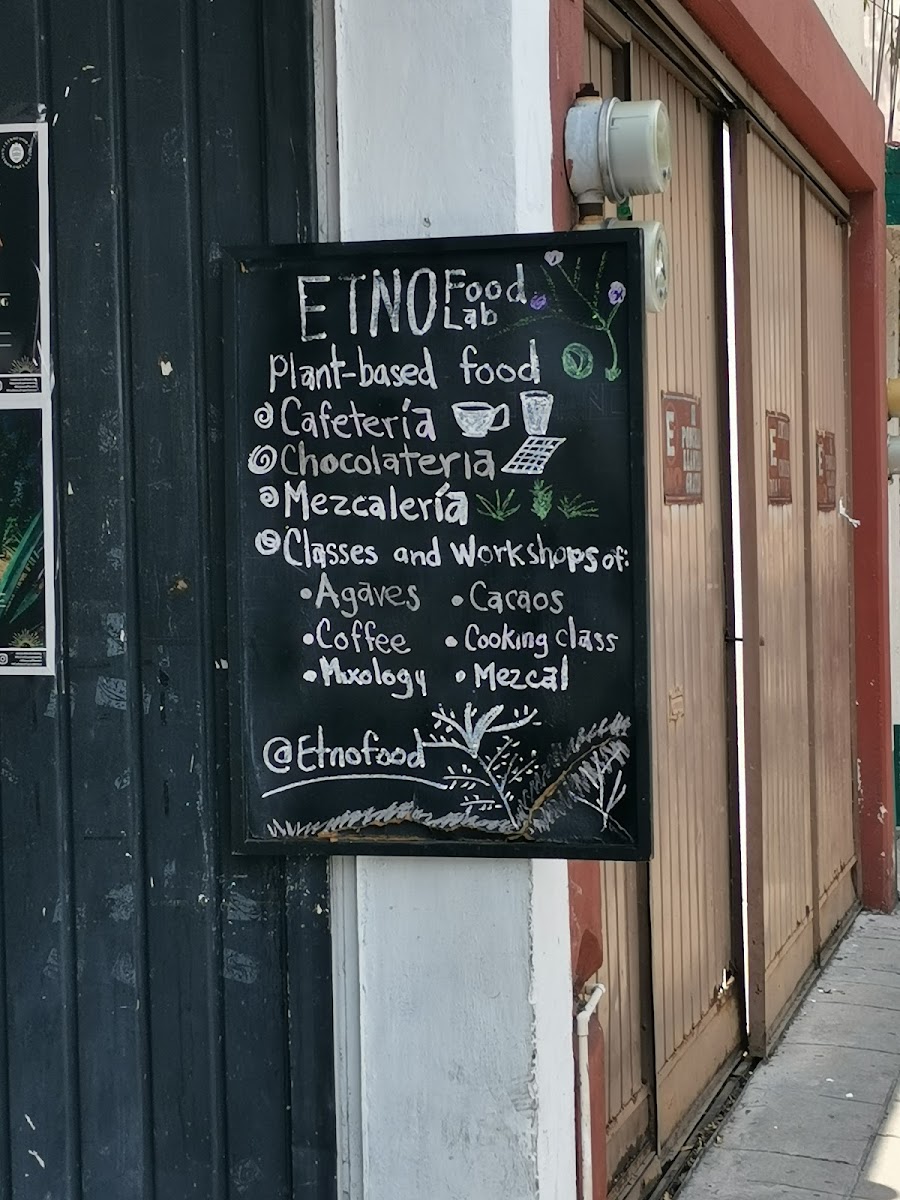 ETNO Food Lab
Plant-based food
Cafetería
Chocolatería
Mezcalería
Classes and Workshops of:
• Agaves • Cacaos
• Coffee • Cooking class
• Mixology • Mezcal
@Etnofood